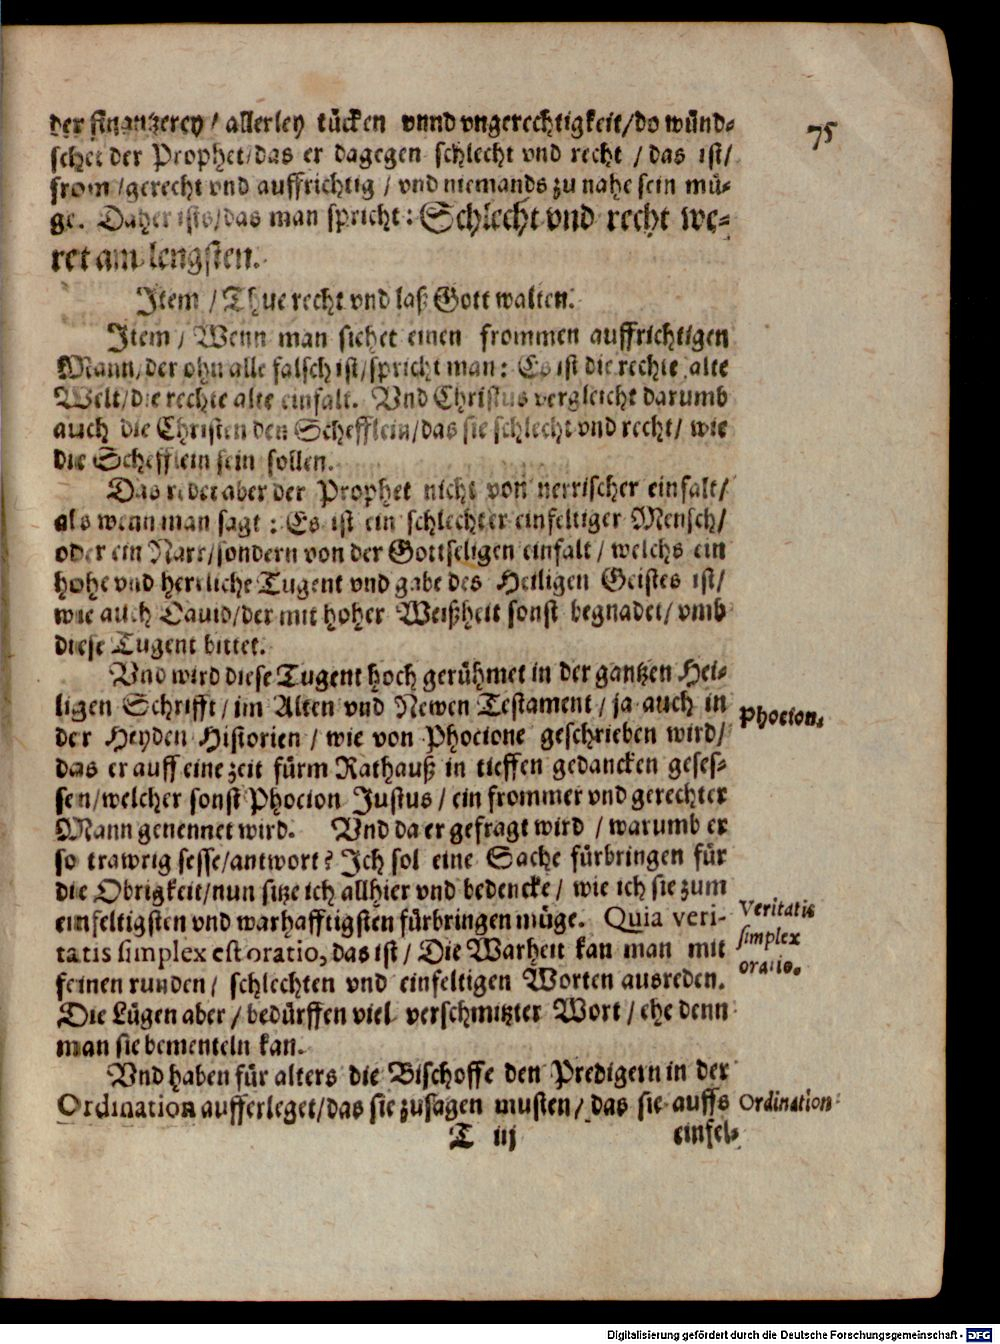 der finantzerey / allerley tücken vnnd vngerechtigkeit/do wünd-
schet der Prophet/das er dagegen schlecht vnd recht / das ist/
from /gerecht vnd auffrichtig / vnd niemands zu nahe sein mü-
ge. Daher ists/das man spricht: Schlecht vnd recht we-
ret am lengsten.
75
Item / Thue recht vnd laß Gott walten.
Item / Wenn man siehet einen frommen auffrichtigen
Mann/der ohn alle falsch ist/spricht man: Es ist die rechte alte
Welt/die rechte alte einfalt. Vnd Christus vergleicht darumb
auch die Christen den Schefflein/das sie schlecht vnd recht/ wie
die Schefflein sein sollen.
Das redet aber der Prophet nicht von nerrischer einfalt/
als wenn man sagt : Es ist ein schlechter einfeltiger Mensch/
oder ein Narr/sondern von der Gottseligen einfalt / welchs ein
hohe vnd herrliche Tugent vnd gabe des Heiligen Geistes ist/
wie auch Dauid/der mit hoher Weißheit sonst begnadet/ vmb
diese Tugent bittet.
Vnd wird diese Tugent hoch gerühmet in der gantzen Hei-
ligen Schrifft / im Alten vnd Newen Testament / ja auch in
der Heyden Historien / wie von Phocione geschrieben wird/
Phocion.
das er auff eine zeit fürm Rathauß in tieffen gedancken geses-
sen/welcher sonst Phocion Justus / ein frommer vnd gerechter
Mann genennet wird. Vnd da er gefragt wird / warumb er
so trawrig sesse/antwort? Ich sol eine Sache fürbringen für
die Obrigkeit/nun sitze ich allhier vnd bedencke / wie ich sie zum
einfeltigsten vnd warhafftigsten fürbringen müge. Quia veri-
tatis simplex est oratio, das ist / Die Warheit kan man mit
feinen runden / schlechten vnd einfeltigen Worten ausreden.
Veritatis
simplex
oratio.
Die Lügen aber / bedürffen viel verschmitzter Wort / ehe denn
man sie bementeln kan.
Vnd haben für alters die Bischoffe den Predigern in der
Ordination aufferleget/das sie zusagen musten / das sie auffs
Ordination
T iij
einfel-
Digitalisierung gefördert durch die Deutsche Forschungsgemeinschaft - DFG